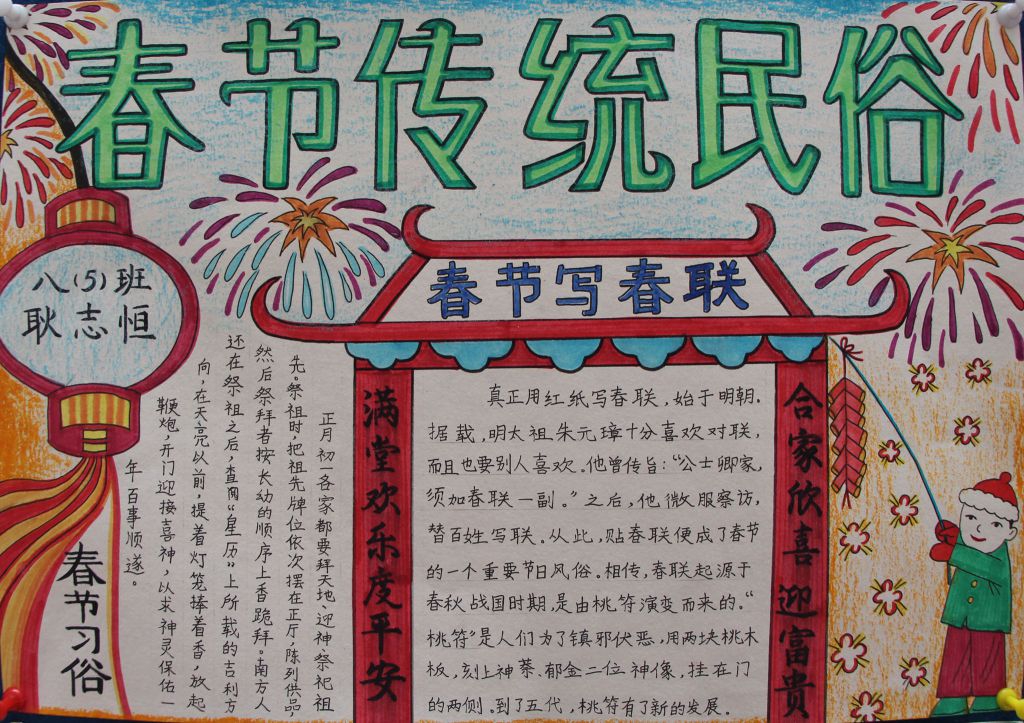 春节传统民俗
八(5)班
耿志恒
春节写春联
满堂欢乐度平安
合家欣喜迎富贵
真正用红纸写春联，始于明朝.
据载，明太祖朱元璋十分喜欢对联，
而且也要别人喜欢.他曾传旨："公士卿家，
须加春联一副。"之后，他微服察访，
替百姓写联.从此，贴春联便成了春节
的一个重要节日风俗.相传，春联起源于
春秋战国时期，是由桃符演变而来的."
桃符"是人们为了镇邪伏恶，用两块桃木
板，刻上神荼、郁金二位神像，挂在门
的两侧.到了五代，桃符有了新的发展.
正月初一各家都要拜天地、迎神、祭祀祖
先。祭祖时，把祖先牌位依次摆在正厅陈列供品，
然后祭拜者按长幼的顺序上香跪拜.南方人
还在祭祖之后，查阅"皇历"上所载的吉利方
向，在天亮以前，提着灯笼捧着香，放起
鞭炮，开门迎接喜神，以求神灵保佑一
年百事顺遂。
春节习俗